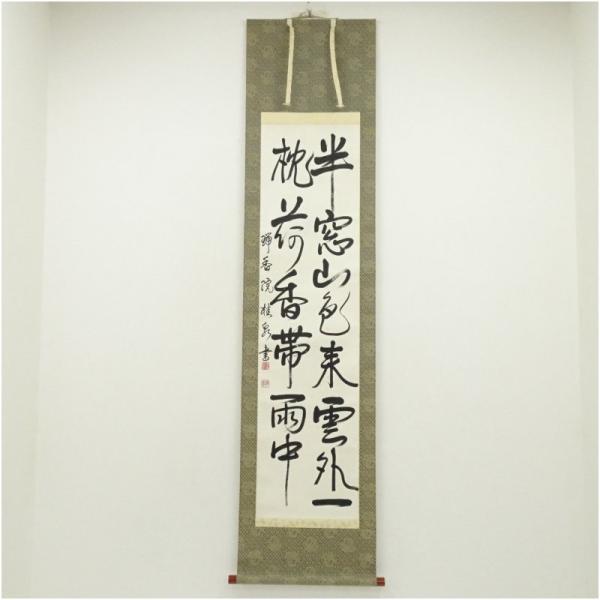 半窓山色来雲外一
枕荷香帯雨中
香院桂泉書